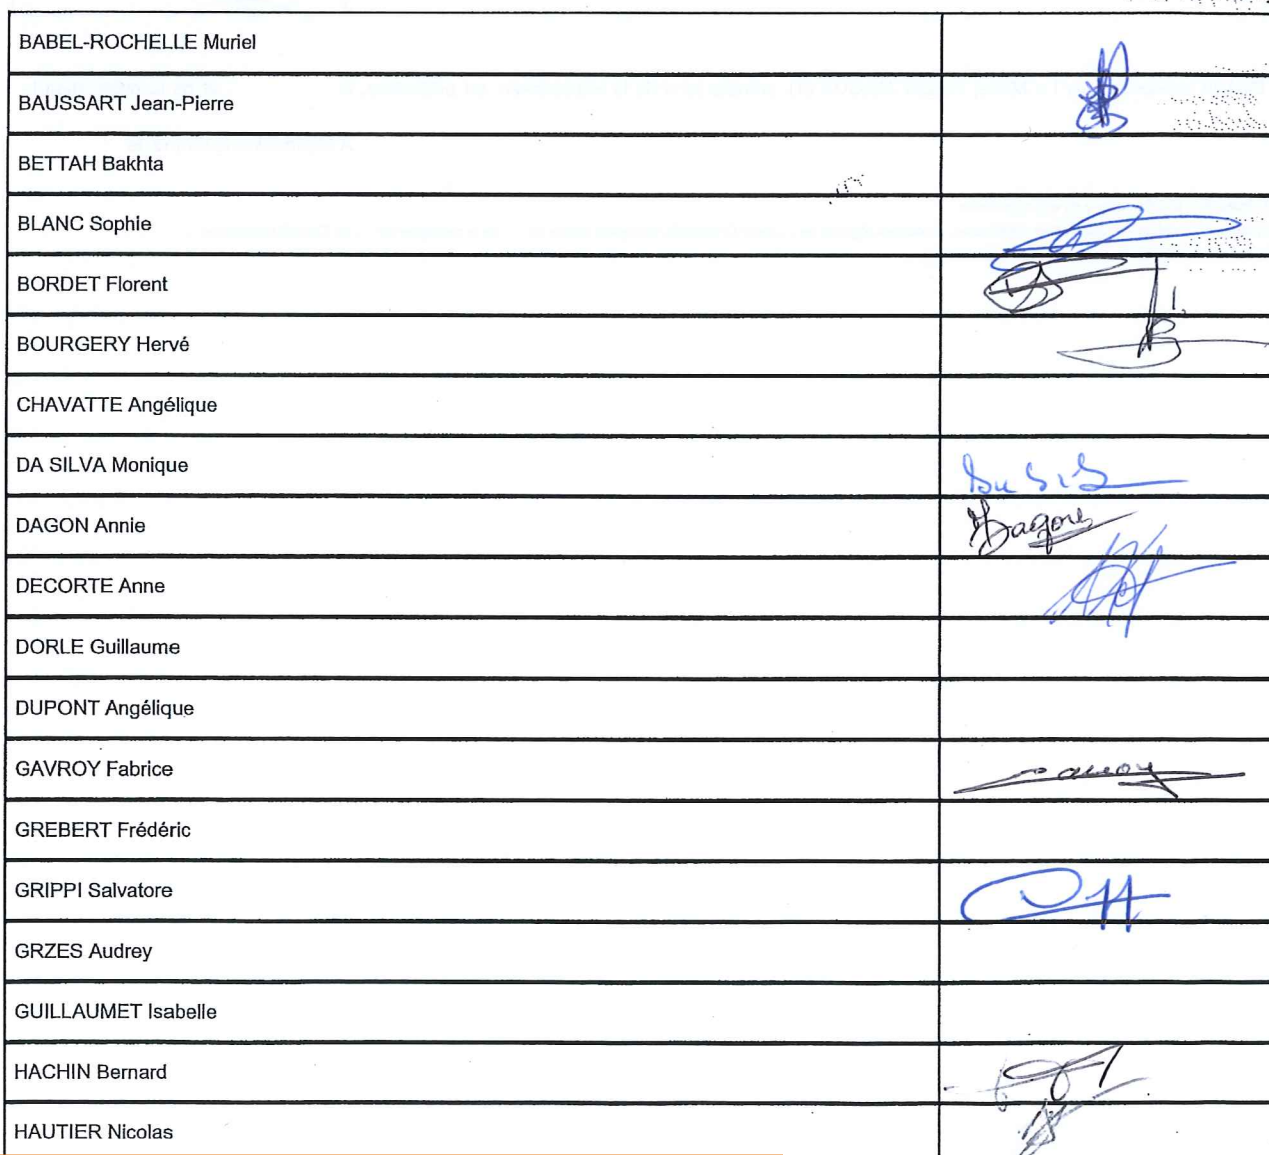 BABEL-ROCHELLE Muriel
BAUSSART Jean-Pierre
BETTAH Bakhta
BLANC Sophie
BORDET Florent
BOURGERY Hervé
CHAVATTE Angélique
DA SILVA Monique
DAGON Annie
Dagon
DECORTE Anne
DORLE Guillaume
DUPONT Angélique
GAVROY Fabrice
GREBERT Frédéric
GRIPPI Salvatore
GRZES Audrey
GUILLAUMET Isabelle
HACHIN Bernard
HAUTIER Nicolas